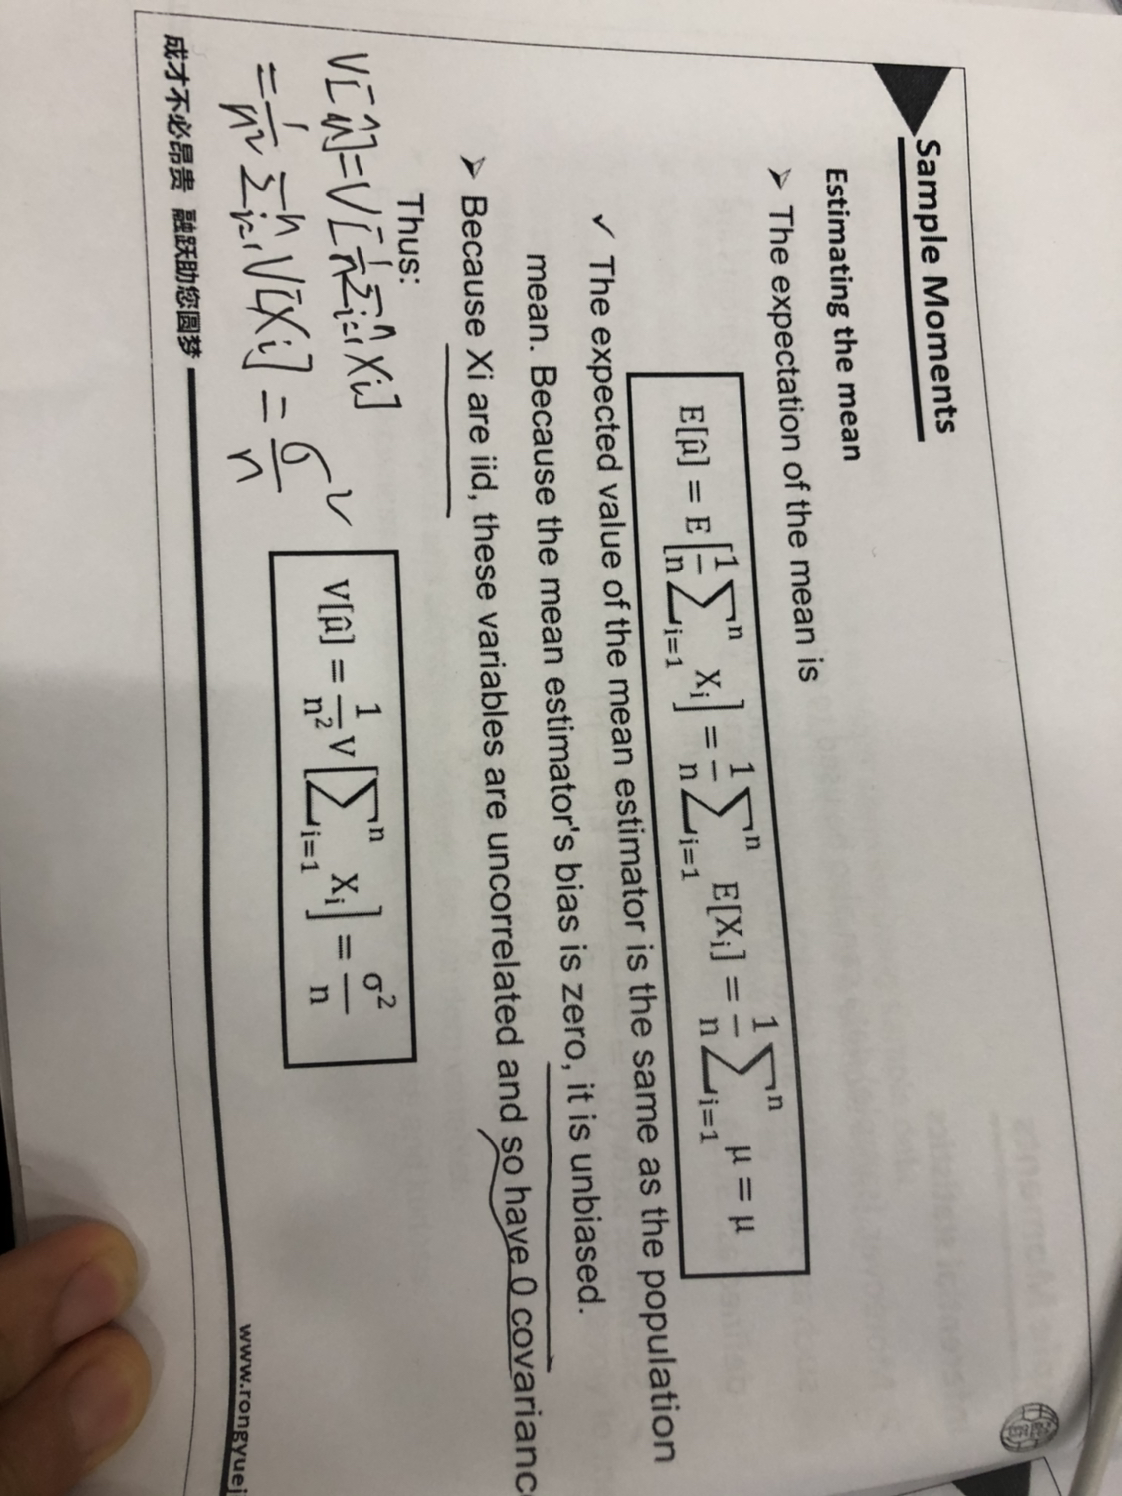 Sample Moments
Estimating the mean
➢ The expectation of the mean is
E[μ̂] = E[1/n ∑ⁿᵢ₌₁ Xᵢ] = 1/n ∑ⁿᵢ₌₁ E[Xᵢ] = 1/n ∑ⁿᵢ₌₁ μ = μ
✓ The expected value of the mean estimator is the same as the population
mean. Because the mean estimator's bias is zero, it is unbiased.
➢ Because Xi are iid, these variables are uncorrelated and so have 0 covariance
Thus:
V[μ̂] = V[1/n ∑ⁿᵢ₌₁ Xi]
= 1/n² ∑ⁿᵢ₌₁ V[Xi] = σ²/n
V[μ̂] = 1/n² V[∑ⁿᵢ₌₁ Xᵢ] = σ²/n
成才不必昂贵 融跃助您圆梦
www.rongyuej